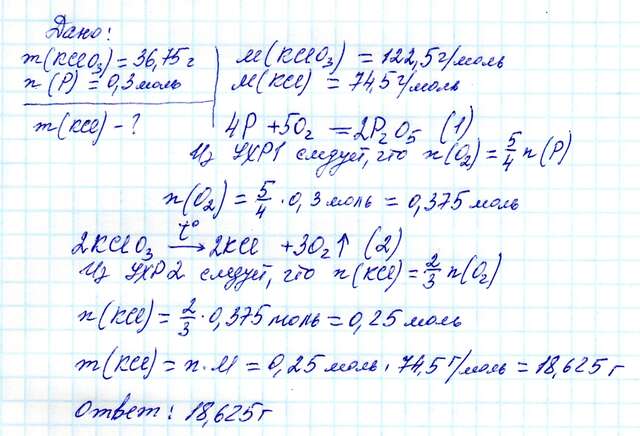 Дано:
m(KClO₃) = 36,75 г
n(P) = 0,3 моль
m(KCl) - ?
M(KClO₃) = 122,5 г/моль
M(KCl) = 74,5 г/моль
4P + 5O₂ = 2P₂O₅ (1)
Из УХР1 следует, что n(O₂) = 5/4 n(P)
n(O₂) = 5/4 · 0,3 моль = 0,375 моль
2KClO₃ →t° 2KCl + 3O₂↑ (2)
Из УХР2 следует, что n(KCl) = 2/3 n(O₂)
n(KCl) = 2/3 · 0,375 моль = 0,25 моль
m(KCl) = n · M = 0,25 моль · 74,5 г/моль = 18,625 г
Ответ: 18,625 г